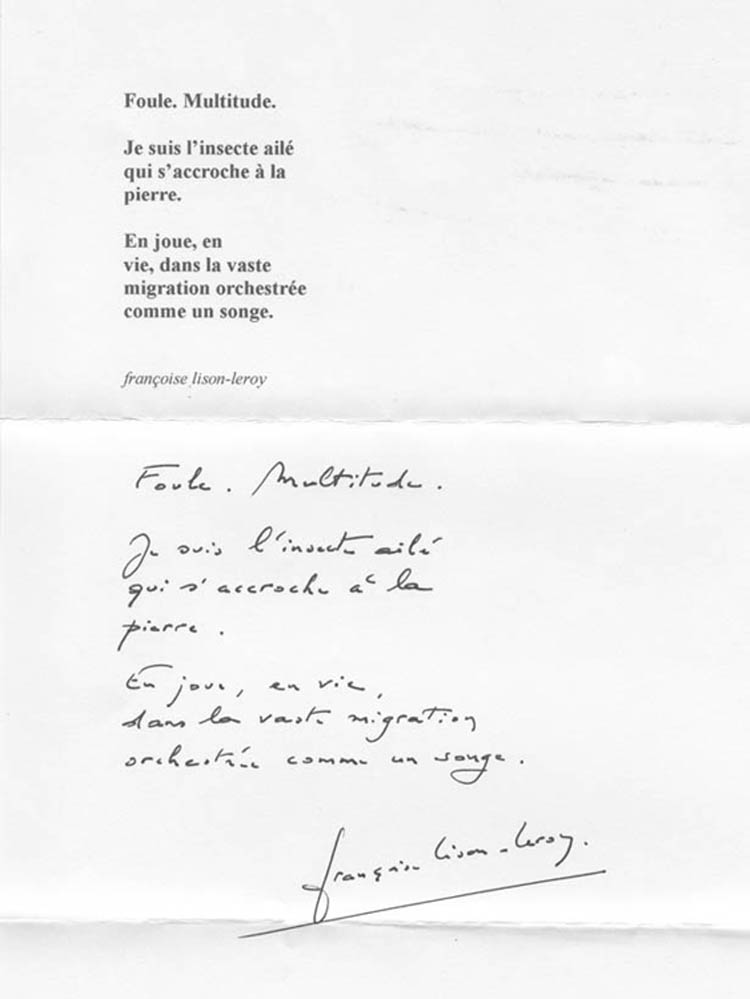 Foule. Multitude.
Je suis l'insecte ailé
qui s'accroche à la
pierre.
En joue, en
vie, dans la vaste
migration orchestrée
comme un songe.
françoise lison-leroy
Foule. Multitude.
Je suis l'insecte ailé
qui s'accroche à la
pierre.
En joue, en vie,
dans la vaste migration
orchestrée comme un songe.
françoise lison-leroy.